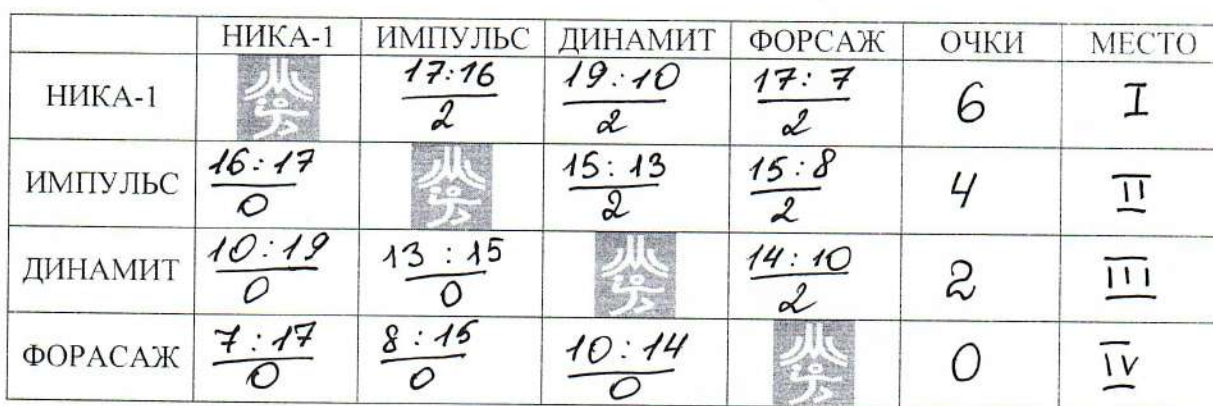 НИКА-1 ИМПУЛЬС ДИНАМИТ ФОРСАЖ ОЧКИ МЕСТО
НИКА-1 17:16 19:10 17:7 6 I
2 2 2
ИМПУЛЬС 16:17 15:13 15:8 4 II
0 2 2
ДИНАМИТ 10:19 13:15 14:10 2 III
0 0 2
ФОРАСАЖ 7:17 8:15 10:14 0 IV
0 0 0